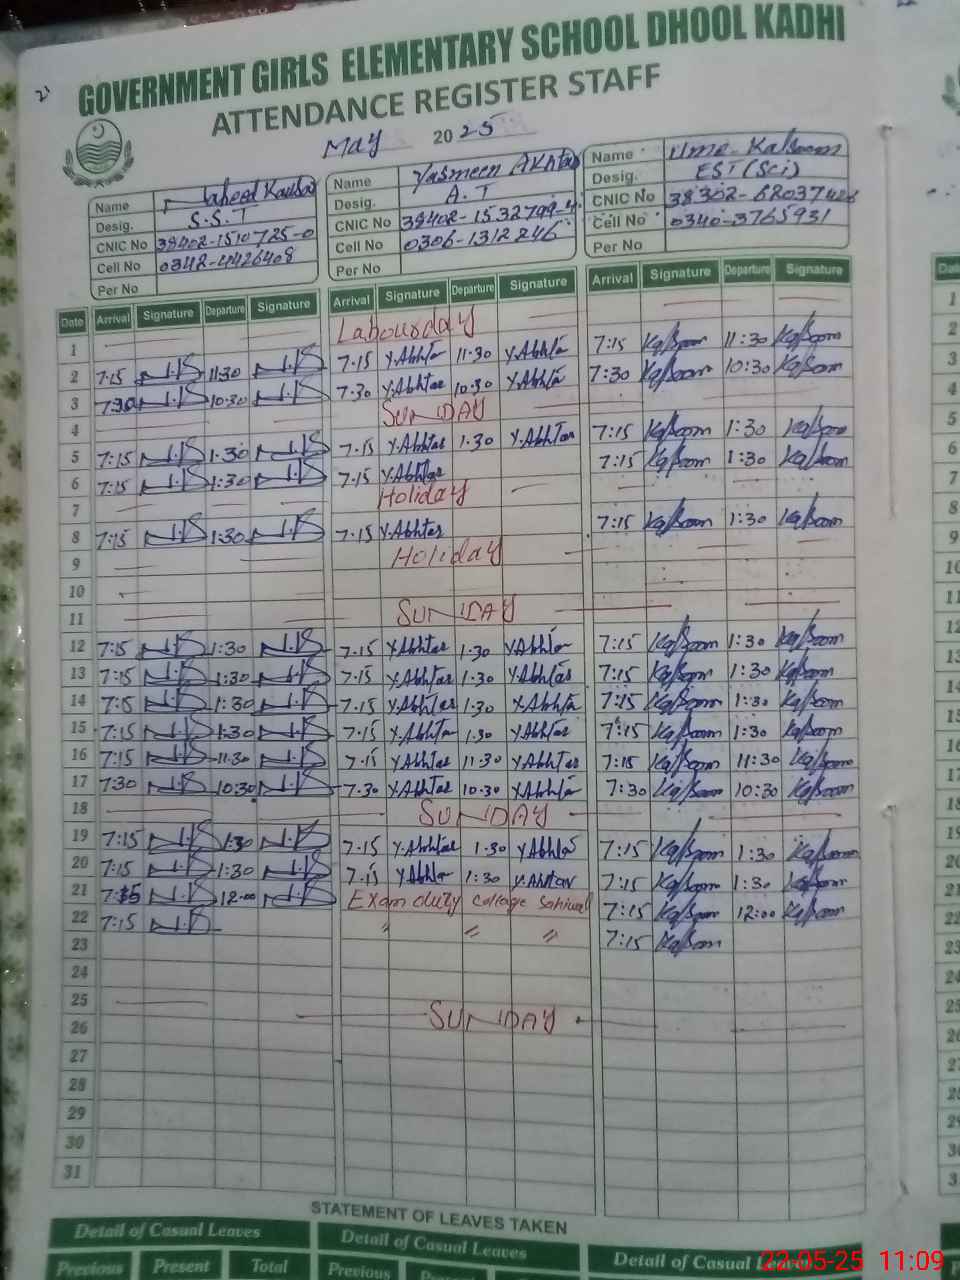 GOVERNMENT GIRLS ELEMENTARY SCHOOL DHOOL KADHI
ATTENDANCE REGISTER STAFF
21
May 2025
Name Naheed Kausar Name Yasmeen Akhtar Name Ume-Kalsoom
Desig. S.S.T Desig. A.T Desig. EST (Sci)
CNIC No 38402-1510725-0 CNIC No 38402-1532799-4 CNIC No 38302-6203742
Cell No 0342-4426408 Cell No 0306-1312246 Cell No 0340-3765931
Per No Per No Per No
Date Arrival Signature Departure Signature Arrival Signature Departure Signature Arrival Signature Departure Signature
1 Labour day
2 7:15 11:30 7.15 Y.Akhtar 11.30 Y.Akhtar 7:15 Kalsoom 11:30 Kalsoom
3 7:30 10:30 7.30 Y.Akhtar 10.30 Y.Akhtar 7:30 Kalsoom 10:30 Kalsoom
4 SUNDAY
5 7:15 1:30 7.15 Y.Akhtar 1.30 Y.Akhtar 7:15 Kalsoom 1:30 Kalsoom
6 7:15 1:30 7.15 Y.Akhtar 7:15 Kalsoom 1:30 Kalsoom
7 Holiday
8 7:15 1:30 7.15 Y.Akhtar 7:15 Kalsoom 1:30 Kalsoom
9 Holiday
10
11 SUNDAY
12 7:15 1:30 7.15 Y.Akhtar 1.30 Y.Akhtar 7:15 Kalsoom 1:30 Kalsoom
13 7:15 1:30 7.15 Y.Akhtar 1.30 Y.Akhtar 7:15 Kalsoom 1:30 Kalsoom
14 7:15 1:30 7.15 Y.Akhtar 1.30 Y.Akhtar 7:15 Kalsoom 1:30 Kalsoom
15 7:15 1:30 7.15 Y.Akhtar 1.30 Y.Akhtar 7:15 Kalsoom 1:30 Kalsoom
16 7:15 11:30 7.15 Y.Akhtar 11.30 Y.Akhtar 7:15 Kalsoom 11:30 Kalsoom
17 7:30 10:30 7.30 Y.Akhtar 10.30 Y.Akhtar 7:30 Kalsoom 10:30 Kalsoom
18 SUNDAY
19 7:15 1:30 7.15 Y.Akhtar 1.30 Y.Akhtar 7:15 Kalsoom 1:30 Kalsoom
20 7:15 1:30 7.15 Y.Akhtar 1:30 Y.Akhtar 7:15 Kalsoom 1:30 Kalsoom
21 12:00 Exam duty college Sahiwal 7:15 Kalsoom 12:00 Kalsoom
22 7:15 〃 〃 〃 7:15 Kalsoom
23
24
25 SUNDAY
26
27
28
29
30
31
STATEMENT OF LEAVES TAKEN
Detail of Casual Leaves Detail of Casual Leaves Detail of Casual Leaves
Previous Present Total Previous
22-05-25 11:09